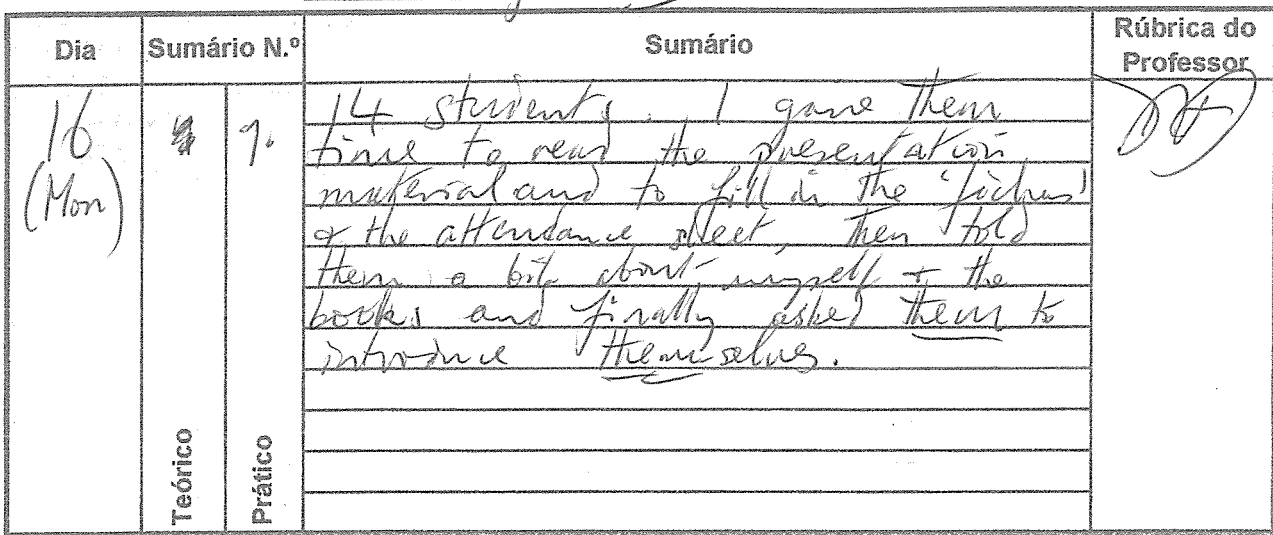 Dia Sumário N.º Sumário Rúbrica do Professor
16
(Mon)
14 students. I gave them
time to read the presentation
material and to fill in the 'fichas'
& the attendance sheet, then told
them a bit about myself + the
books and finally asked them to
introduce themselves.
Teórico
Prático